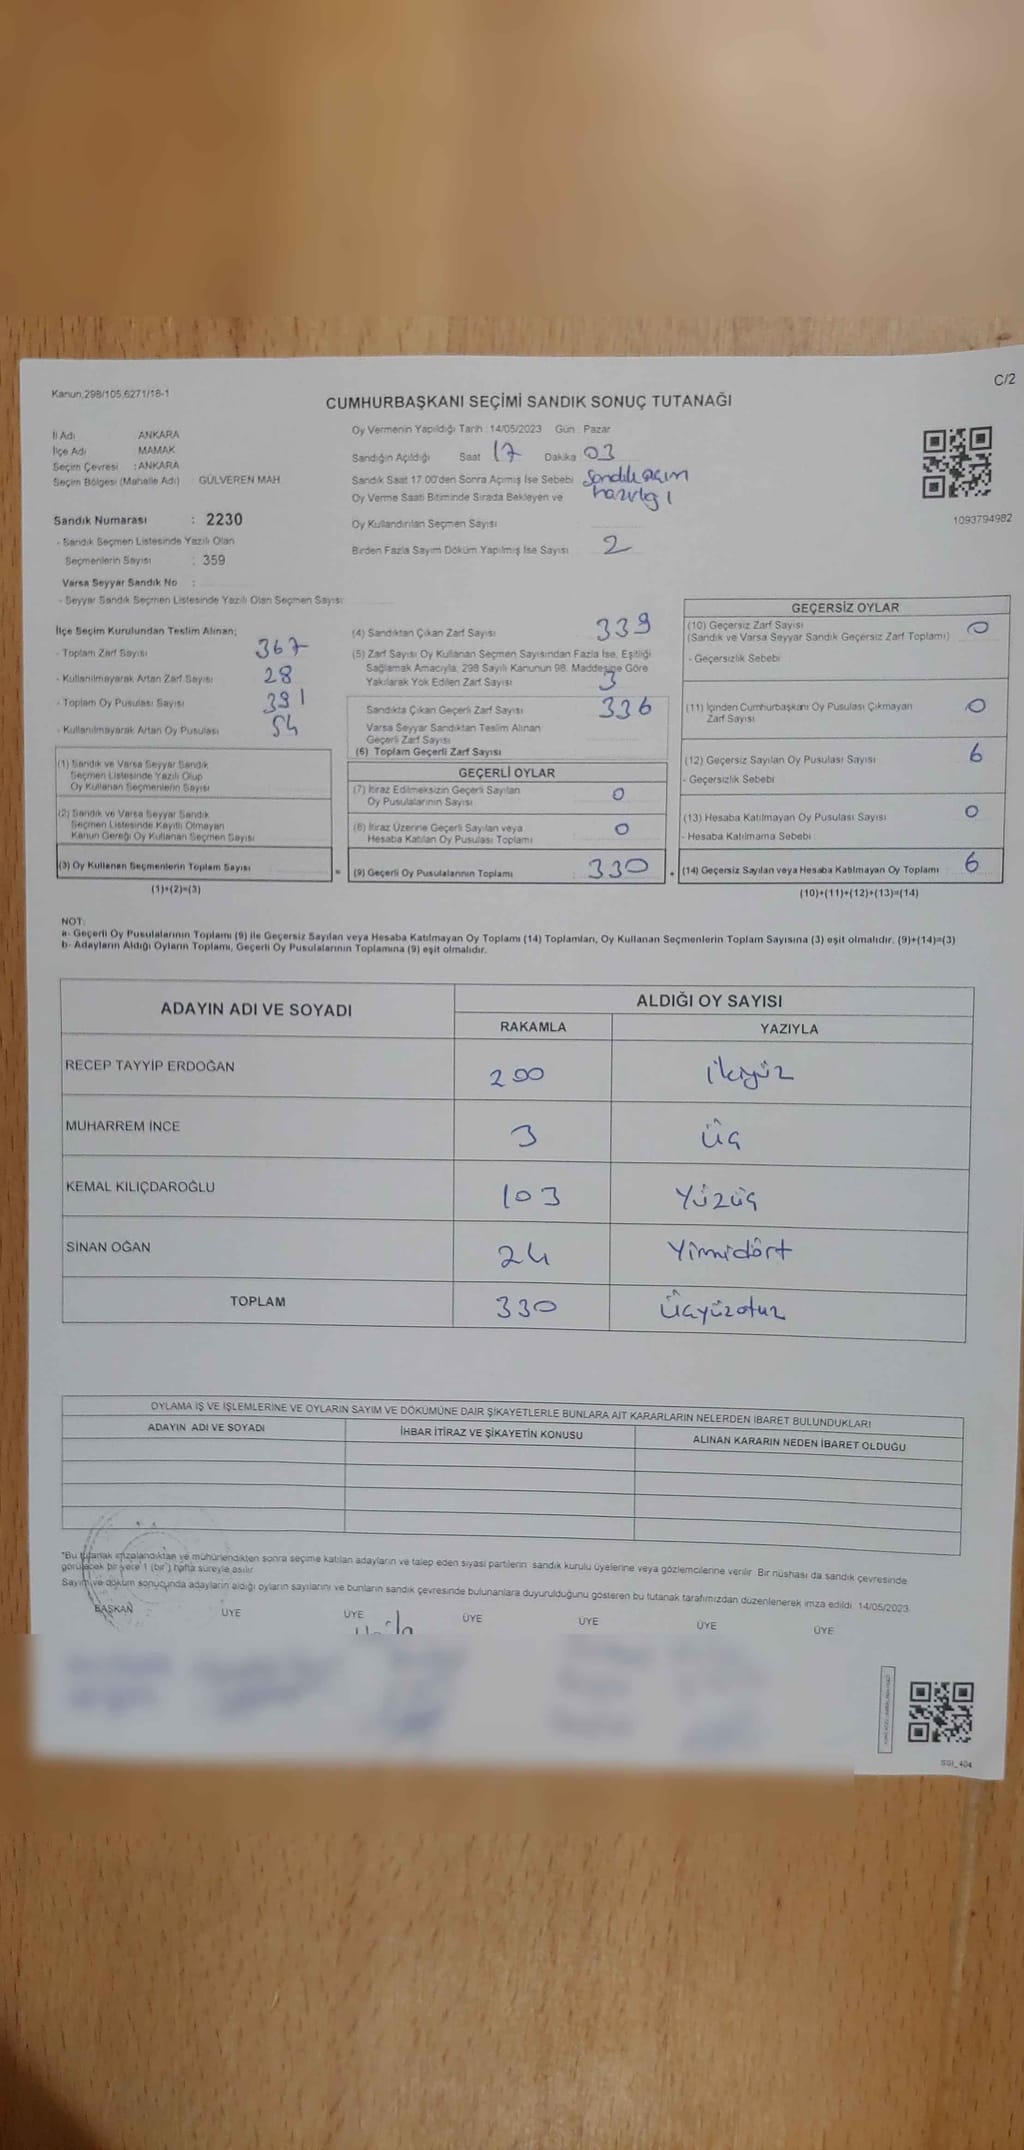 Kanun,298/105,6271/18-1
C/2
CUMHURBAŞKANI SEÇİMİ SANDIK SONUÇ TUTANAĞI
İl Adı ANKARA
İlçe Adı MAMAK
Seçim Çevresi : ANKARA
Seçim Bölgesi (Mahalle Adı) GÜLVEREN MAH
Sandık Numarası : 2230
- Sandık Seçmen Listesinde Yazılı Olan
Seçmenlerin Sayısı : 359
Varsa Seyyar Sandık No :
- Seyyar Sandık Seçmen Listesinde Yazılı Olan Seçmen Sayısı
Oy Vermenin Yapıldığı Tarih : 14/05/2023 Gün : Pazar
Sandığın Açıldığı Saat 17 Dakika 03
Sandık Saat 17.00'den Sonra Açımış İse Sebebi Sandık açım
hazırlığı
Oy Verme Saati Bitiminde Sırada Bekleyen ve
Oy Kullandırılan Seçmen Sayısı
Birden Fazla Sayım Döküm Yapılmış İse Sayısı 2
1093794982
İlçe Seçim Kurulundan Teslim Alınan;
- Toplam Zarf Sayısı 367
- Kullanılmayarak Artan Zarf Sayısı 28
- Toplam Oy Pusulası Sayısı 391
- Kullanılmayarak Artan Oy Pusulası 54
(1) Sandık ve Varsa Seyyar Sandık
Seçmen Listesinde Yazılı Olup
Oy Kullanan Seçmenlerin Sayısı
(2) Sandık ve Varsa Seyyar Sandık
Seçmen Listesinde Kayıtlı Olmayan
Kanun Gereği Oy Kullanan Seçmen Sayısı
(3) Oy Kullanan Seçmenlerin Toplam Sayısı
(1)+(2)=(3)
(4) Sandıktan Çıkan Zarf Sayısı 339
(5) Zarf Sayısı Oy Kullanan Seçmen Sayısından Fazla İse, Eşitliği
Sağlamak Amacıyla, 298 Sayılı Kanunun 98. Maddesine Göre
Yakılarak Yok Edilen Zarf Sayısı 3
Sandıkta Çıkan Geçerli Zarf Sayısı 336
Varsa Seyyar Sandıktan Teslim Alınan
Geçerli Zarf Sayısı
(6) Toplam Geçerli Zarf Sayısı
GEÇERLİ OYLAR
(7) İtiraz Edilmeksizin Geçerli Sayılan
Oy Pusulalarının Sayısı 0
(8) İtiraz Üzerine Geçerli Sayılan veya
Hesaba Katılan Oy Pusulası Toplamı 0
= (9) Geçerli Oy Pusulalarının Toplamı : 330
GEÇERSİZ OYLAR
(10) Geçersiz Zarf Sayısı 0
(Sandık ve Varsa Seyyar Sandık Geçersiz Zarf Toplamı)
- Geçersizlik Sebebi
(11) İçinden Cumhurbaşkanı Oy Pusulası Çıkmayan
Zarf Sayısı 0
(12) Geçersiz Sayılan Oy Pusulası Sayısı 6
- Geçersizlik Sebebi
(13) Hesaba Katılmayan Oy Pusulası Sayısı 0
- Hesaba Katılmama Sebebi
+ (14) Geçersiz Sayılan veya Hesaba Katılmayan Oy Toplamı 6
(10)+(11)+(12)+(13)=(14)
NOT:
a- Geçerli Oy Pusulalarının Toplamı (9) ile Geçersiz Sayılan veya Hesaba Katılmayan Oy Toplamı (14) Toplamları, Oy Kullanan Seçmenlerin Toplam Sayısına (3) eşit olmalıdır. (9)+(14)=(3)
b- Adayların Aldığı Oyların Toplamı, Geçerli Oy Pusulalarının Toplamına (9) eşit olmalıdır.
ADAYIN ADI VE SOYADI ALDIĞI OY SAYISI
RAKAMLA YAZIYLA
RECEP TAYYİP ERDOĞAN 200 ikiyüz
MUHARREM İNCE 3 üç
KEMAL KILIÇDAROĞLU 103 Yüzüç
SİNAN OĞAN 24 Yirmidört
TOPLAM 330 Üçyüzotuz
OYLAMA İŞ VE İŞLEMLERİNE VE OYLARIN SAYIM VE DÖKÜMÜNE DAİR ŞİKAYETLERLE BUNLARA AİT KARARLARIN NELERDEN İBARET BULUNDUKLARI
ADAYIN ADI VE SOYADI İHBAR İTİRAZ VE ŞİKAYETİN KONUSU ALINAN KARARIN NEDEN İBARET OLDUĞU
*Bu tutanak imzalandıktan ve mühürlendikten sonra seçime katılan adayların ve talep eden siyasi partilerin sandık kurulu üyelerine veya gözlemcilerine verilir. Bir nüshası da sandık çevresinde
görülecek bir yere 1 (bir) hafta süreyle asılır.
Sayım ve döküm sonucunda adayların aldığı oyların sayılarını ve bunların sandık çevresinde bulunanlara duyurulduğunu gösteren bu tutanak tarafımızdan düzenlenerek imza edildi. 14/05/2023
BAŞKAN ÜYE ÜYE ÜYE ÜYE ÜYE ÜYE
SGI_404